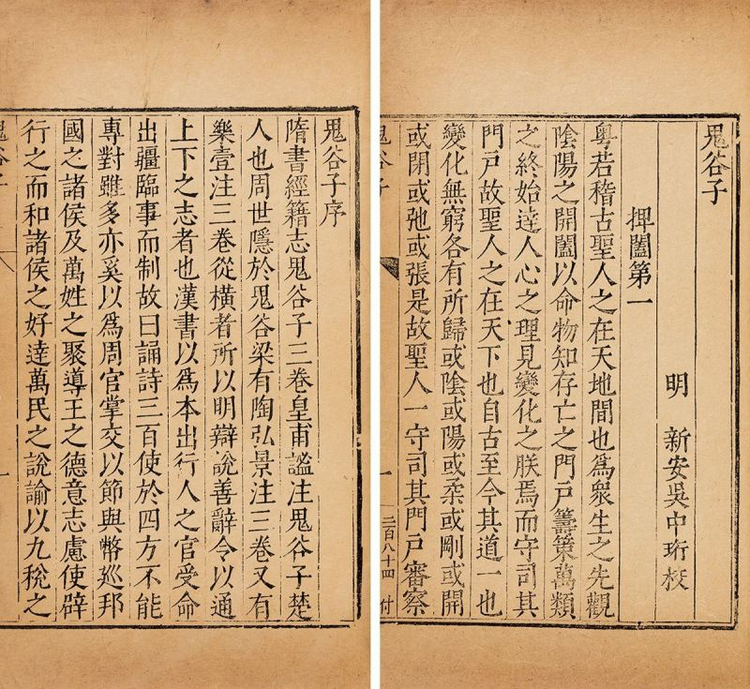 鬼谷子序
隋書經籍志鬼谷子三卷皇甫謐注鬼谷子楚
人也周世隱於鬼谷梁有陶弘景注三卷又有
樂壹注三卷從橫者所以明辯說善辭令以通
上下之志者也漢書以爲本出行人之官受命
出疆臨事而制故曰誦詩三百使於四方不能
專對雖多亦奚以爲周官掌交以節與幣巡邦
國之諸侯及萬姓之聚導王之德意志慮使辟
行之而和諸侯之好達萬民之說諭以九稅之
鬼谷子 一
鬼谷子
明 新安吳中珩校
捭闔第一
粵若稽古聖人之在天地間也爲衆生之先觀
陰陽之開闔以命物知存亡之門戶籌策萬類
之終始達人心之理見變化之朕焉而守司其
門戶故聖人之在天下也自古至今其道一也
變化無窮各有所歸或陰或陽或柔或剛或開
或閉或弛或張是故聖人一守司其門戶審察
鬼谷子 一 二百八十四 付